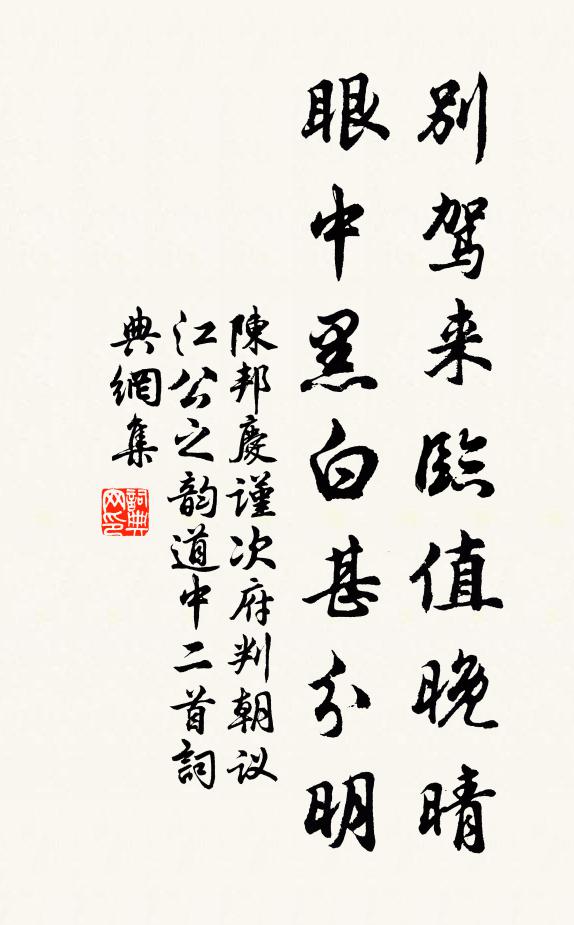 别驾来临值晚晴
眼中黑白甚分明
陳邦慶谨次府判朝议
江公之韵道中二首詞
典網集
詞典网印